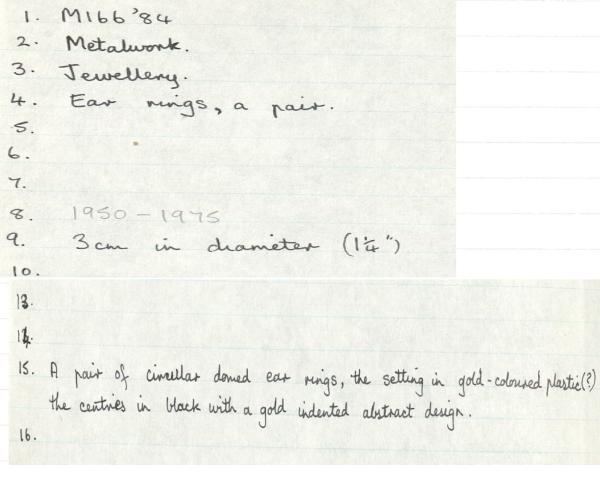 1. M166 '84
2. Metalwork.
3. Jewellery.
4. Ear rings, a pair.
5.
6.
7.
8. 1950 - 1975
9. 3cm in diameter (1¼")
10.
13.
14.
15. A pair of circular domed ear rings, the setting in gold-coloured plastic(?)
the centries in black with a gold indented abstract design.
16.